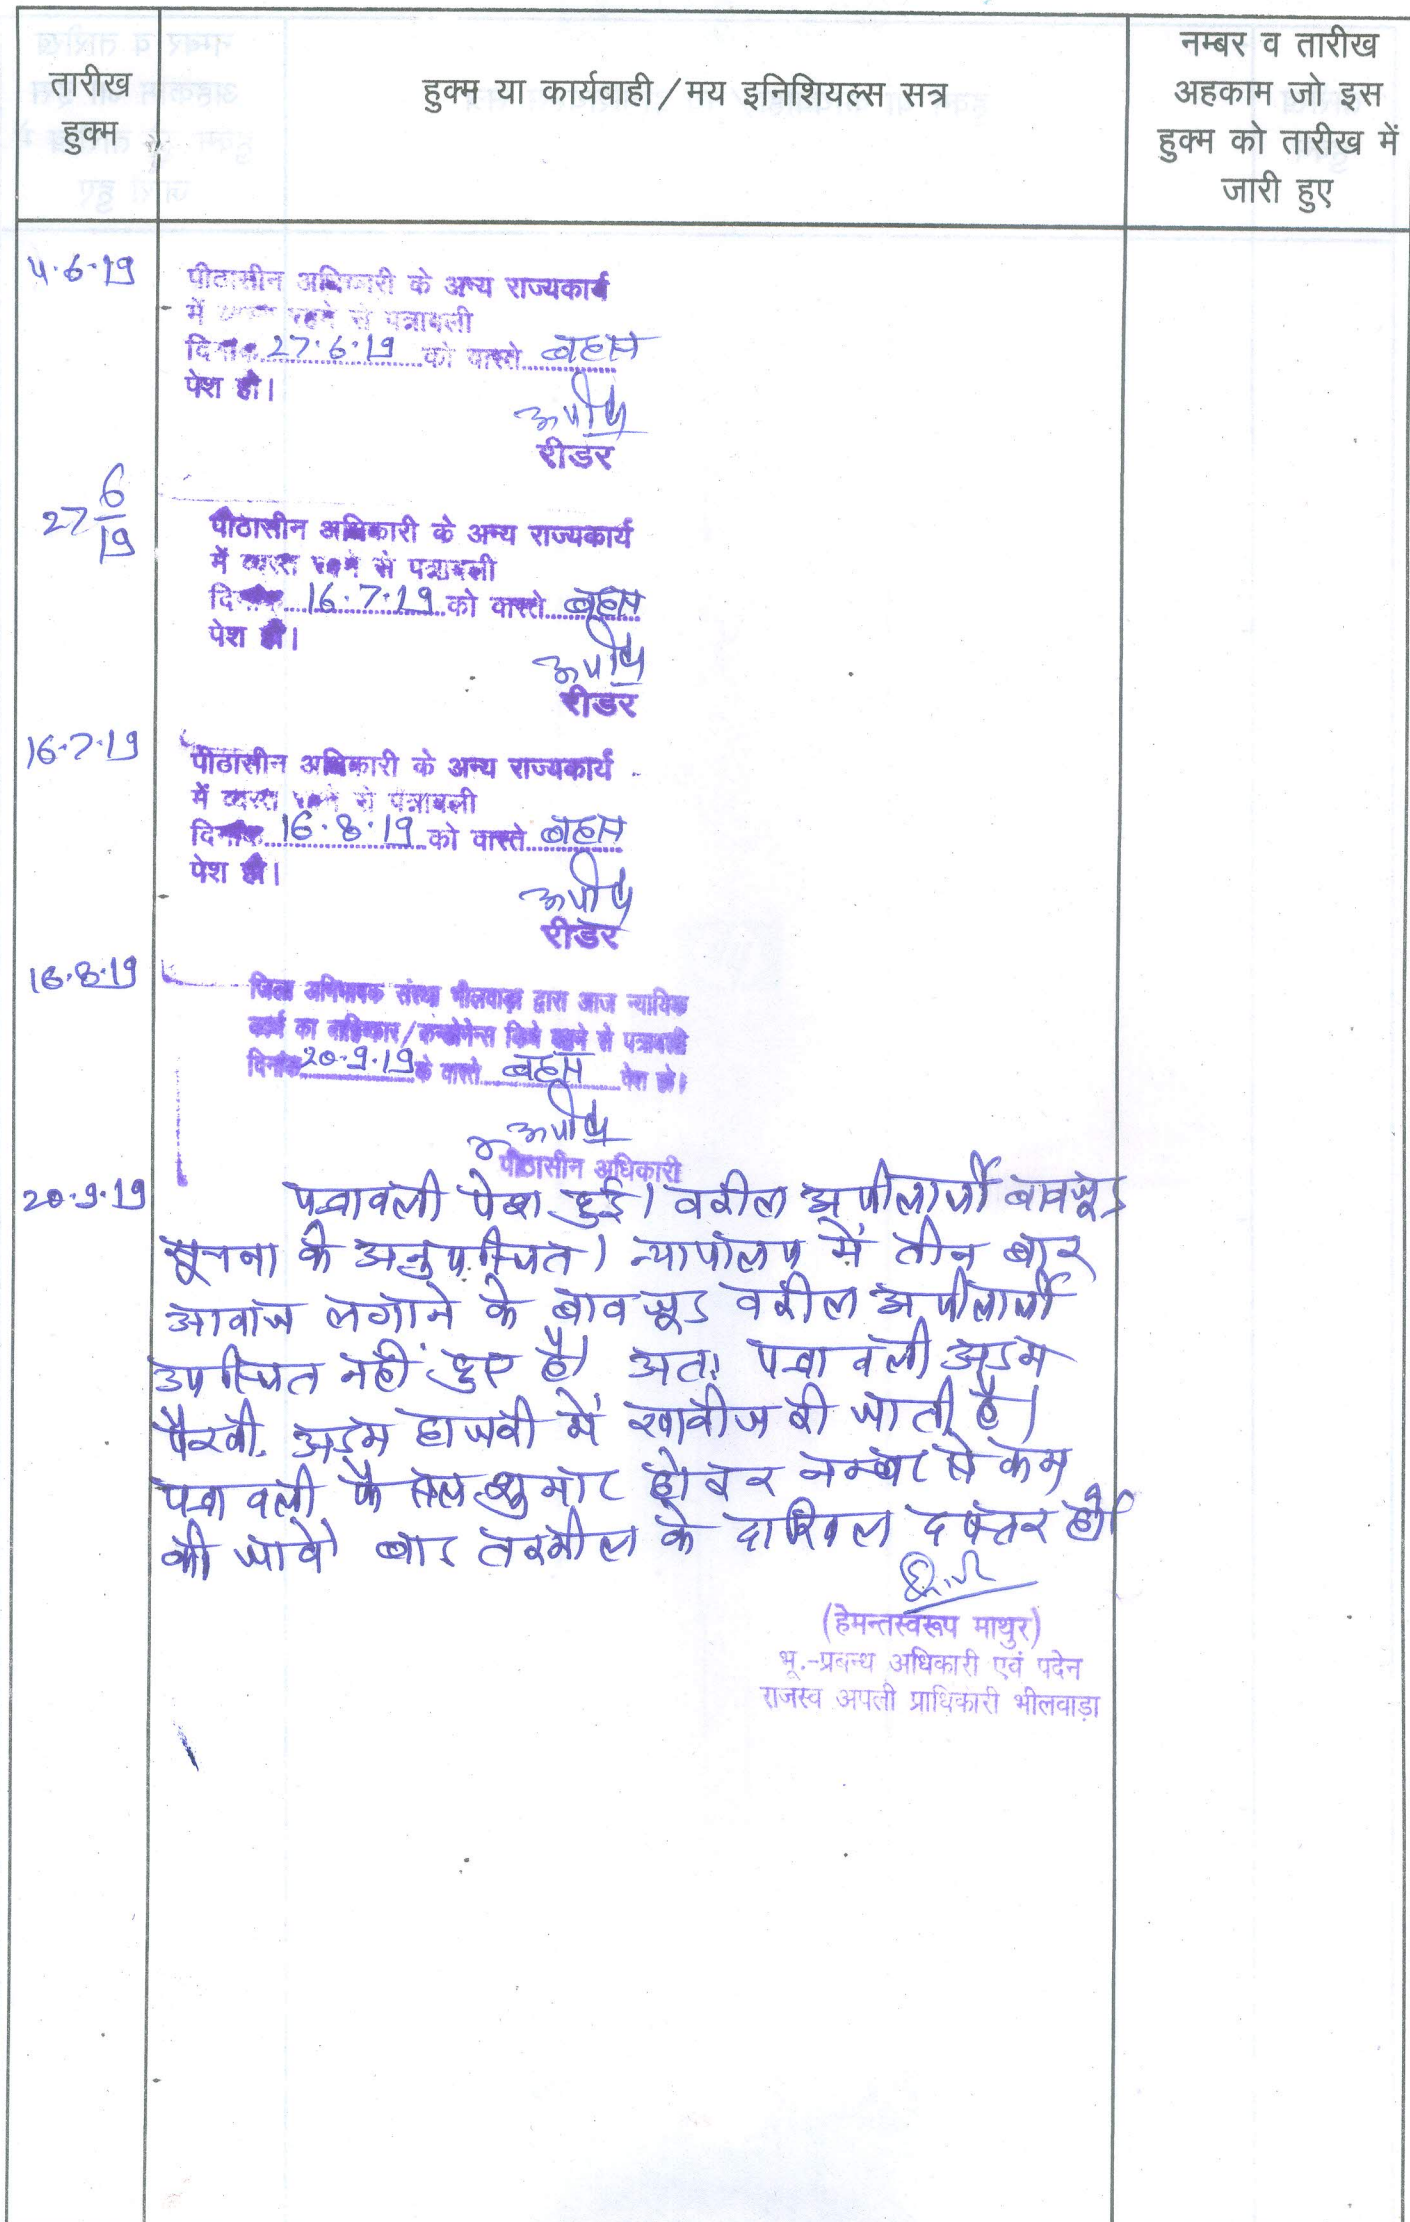 तारीख
हुक्म
हुक्म या कार्यवाही/मय इनिशियल्स सत्र
नम्बर व तारीख
अहकाम जो इस
हुक्म को तारीख में
जारी हुए
4.6.19
पीठासीन अधिकारी के अन्य राज्यकार्य
में व्यस्त रहने से पत्रावली
दिनांक 27.6.19 को वास्ते बहस
पेश हो।
रीडर
27 6/19
पीठासीन अधिकारी के अन्य राज्यकार्य
में व्यस्त रहने से पत्रावली
दिनांक 16.7.19 को वास्ते बहस
पेश हो।
रीडर
16.7.19
पीठासीन अधिकारी के अन्य राज्यकार्य
में व्यस्त रहने से पत्रावली
दिनांक 16.8.19 को वास्ते बहस
पेश हो।
रीडर
16.8.19
जिला अभिभाषक संस्था भीलवाड़ा द्वारा आज न्यायिक
कार्य का बहिष्कार/कन्डोलेन्स किये जाने से पत्रावली
दिनांक 20.9.19 के वास्ते बहस पेश हो।
पीठासीन अधिकारी
20.9.19
पत्रावली पेश हुई। वकील अपीलार्थी बावजूद
सूचना के अनुपस्थित। न्यायालय में तीन बार
आवाज लगाने के बावजूद वकील अपीलार्थी
उपस्थित नहीं हुए है। अतः पत्रावली अदम
पैरवी, अदम हाजरी में खारीज की जाती है।
पत्रावली फैसल शुमार होकर नम्बर से कम
की जावे। बाद तकमील के दाखिल दफ्तर हो।
(हेमन्तस्वरूप माथुर)
भू.-प्रबन्ध अधिकारी एवं पदेन
राजस्व अपली प्राधिकारी भीलवाड़ा